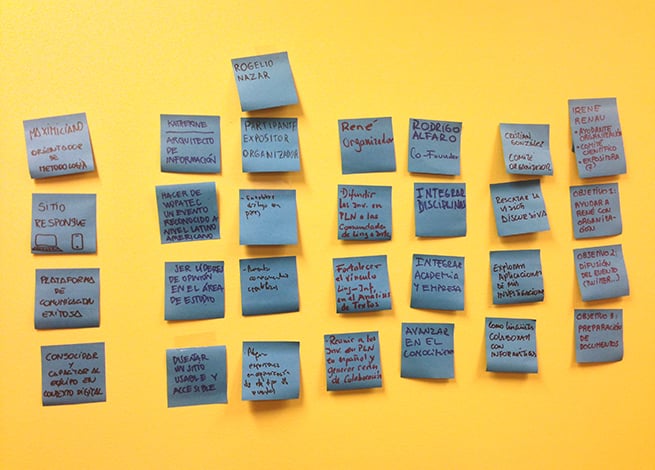 MAXIMILIANO
ORIENTADOR
DE
METODOLOGÍA
SITIO
RESPONSIVE
PLATAFORMA
DE
COMUNIDAD
EXITOSA
CONSOLIDAR
CAPACITAR AL
EQUIPO EN
CONTEXTO DIGITAL
KATHERINE
ARQUITECTO
DE
INFORMACIÓN
HACER DE
WOPATEC
UN EVENTO
RECONOCIDO A
NIVEL LATINO
AMERICANO
SER LÍDERES
DE OPINIÓN
EN EL ÁREA
DE ESTUDIO
DISEÑAR
UN SITIO
USABLE Y
ACCESIBLE
ROGELIO
NAZAR
PARTICIPANTE
EXPOSITOR
ORGANIZADOR
en
científica
experiencia
de
René
Organizador
- Difundir
los Inv. en
PLN a las
Comunidades
de Ling e Inf.
Fortalecer
el vínculo
Ling-Inf.
en el Análisis
de Textos
- Reunir a los
Inv. en PLN
en español y
generar redes
de Colaboración
RODRIGO
ALFARO
Co-Fundador
INTEGRAR
DISCIPLINAS
INTEGRAR
ACADEMIA
Y EMPRESA
AVANZAR
EN EL
CONOCIMIENTO
CRISTIAN
GONZÁLEZ
COMITÉ
ORGANIZADOR
RESCATAR LA
VISIÓN
DISCURSIVA
EXPLORAR
APLICACIONES
DE MIS
INVESTIGACIONES
COMO LINGÜISTA
COLABORAR
CON
INFORMÁTICOS
IRENE
RENAU
- AYUDANTE
ORGANIZACIÓN
- COMITÉ
CIENTÍFICO
- EXPOSITORA
(?)
OBJETIVO 1:
AYUDAR A
RENÉ CON
ORGANIZA-
CIÓN
OBJETIVO 2:
DIFUSIÓN
DEL EVENTO
(TWITTER...)
OBJETIVO 3:
PREPARACIÓN
DE
DOCUMENTOS